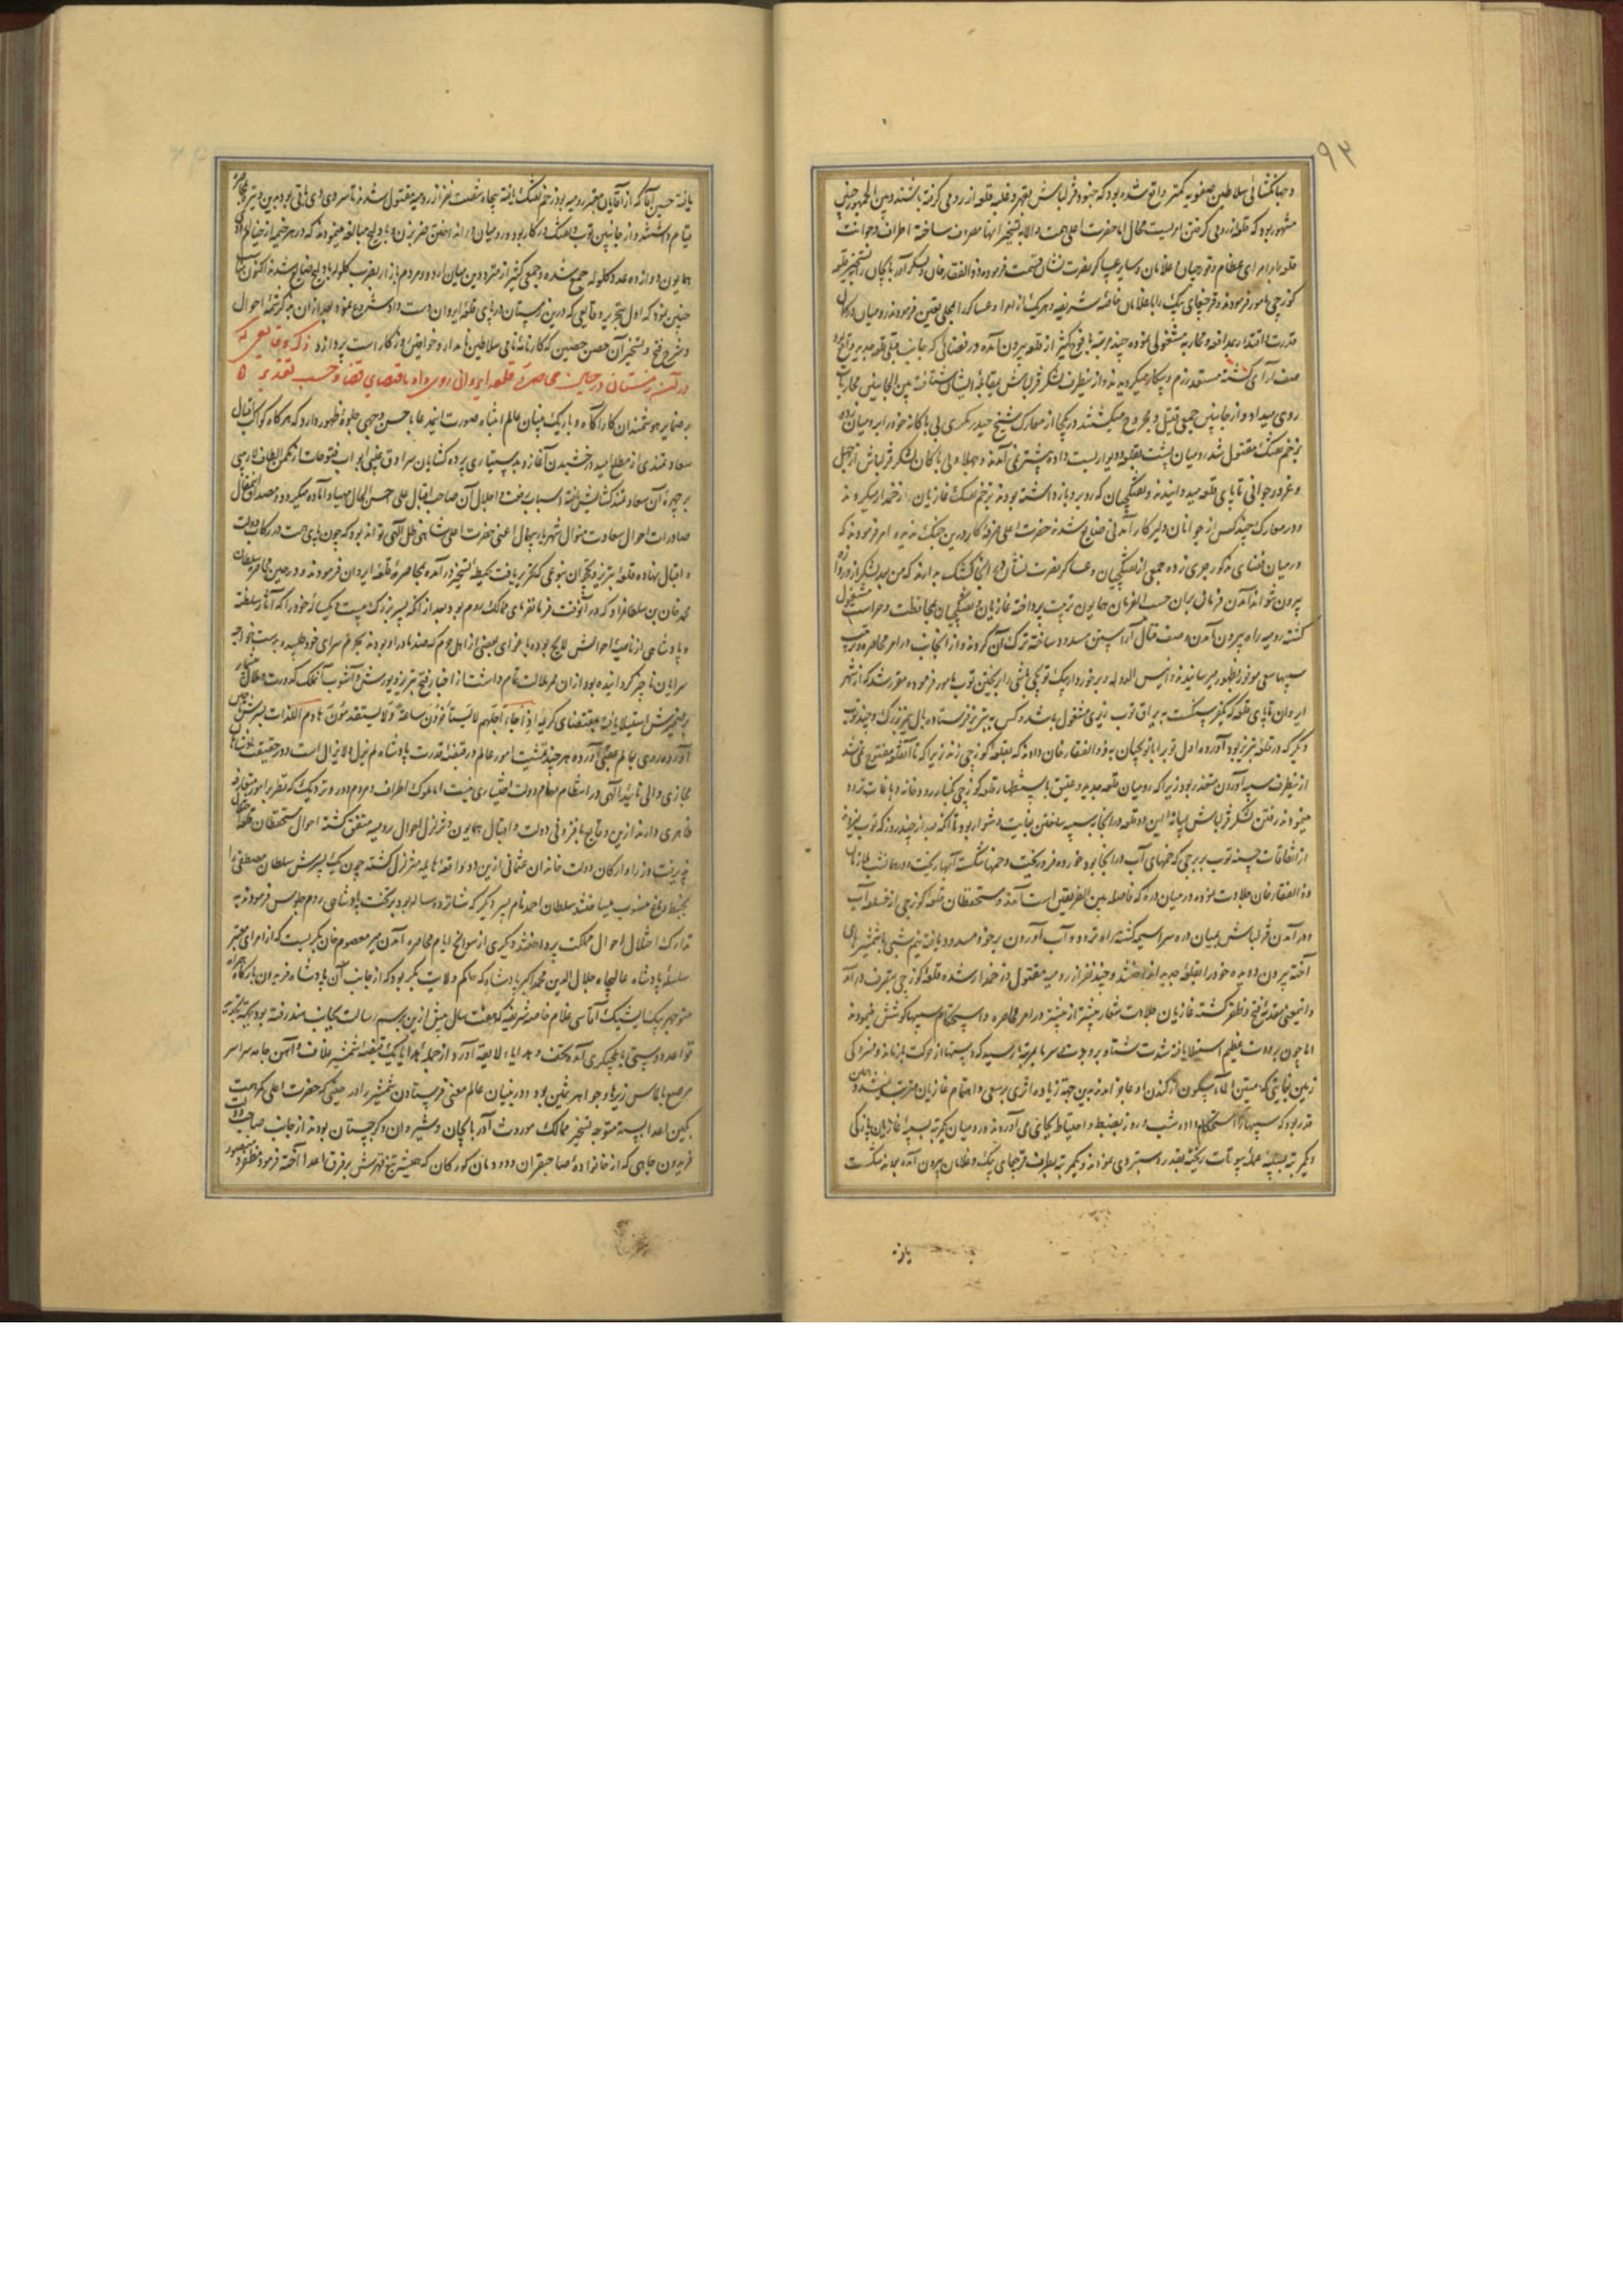 ۹۳
و جهانگشائی سلاطین صفویه کمتر واقع شده بود که جنود قزلباش بقهر و غلبه قلعه از رومی گرفته باشند و بین الجمهور چنین
مشهور بود که قلعه از رومی گرفتن امریست محال اما حضرت اعلی همت والا به تسخیر آنها مصروف ساخته اطراف و جوانب
قلعه را بامرای عظام و قورچیان و غلامان و سایر عساکر نصرت نشان قسمت فرمودند ذوالفقارخان و لشکر آذربایجان را بتسخیر قلعه
کوزچی مامور فرمودند و قرچقای بیک را با غلامان خاصهٔ شریفه و هر یک از امرا و عساکر را بمحلی تعیین فرمودند رومیان
بمدافعه و محاربه مشغولی نموده چند مرتبه با فوج کثیر از قلعه بیرون آمده در فضائی که جانب قبلی قلعه جدید واقع
صف آرای گشته مستعد رزم و پیکار میگردیدند و از ینطرف لشکر قزلباش بمقابلهٔ ایشان شتافته بین الجانبین محاربات
روی میداد و از جانبین جمعی قتیل و مجروح میگشتند در یکی از معارک شیخ حیدر مکری بی باکانه خود را بر میان
بزخم تفنگ مقتول شد رومیان پشت بقلعه و دیوار بست داده پیشتر نمی آمدند و جهلا و بی باکان لشکر قزلباش از جهل
و غرور جوانی تا پای قلعه میدوانیدند و تفنگچیان که رو برو باز داشته بودند بزخم تفنگ غازیان را زخمدار میکردند
و در معارک چند کس از جوانان دلیر کار آمدنی ضایع شدند حضرت اعلی صرفهٔ کار درین جنگ ندیده امر فرمودند که
در میان فضای مذکور جری زده جمعی از تفنگچیان و عساکر نصرت نشان در آنجا کشیک بدارند که من بعد لشکر از دروازه
بیرون نتوانند آمدن فرمان بران حسب الفرمان همایون ترتیب پرداخته غازیان و تفنگچیان بمحافظت و حراست مشغول
گشته رومیه راه بیرون آمدن و صف قتال آراستن مسدود ساخته ترک آن کردند و از آنجانب در امر محاصره و ترتیب
سیبها سعی موفور بظهور میرسانیدند و انیس الدوله و برخوردار بیک توپچی باشی را بریختن توپ مامور فرموده مقرر شد که از شهر
ایروان تا پای قلعه که یکفرسنگست به یراق توپ ریزی مشغول باشد و کس به تبریز فرستاده بال یمز بزرگ و چند توپ
دیگر که در قلعه تبریز بود آورده اول توپ را با توپچیان به ذوالفقارخان دادند که بقلعه کوزچی زند زیرا که تا آن قلعه مفتوح نمی شد
از ینطرف سیبه آوردن متعذر بود زیرا که رومیان قلعه جدید و عتیق باستظهار قلعه کوزچی بکنار رودخانه و باغات تردد
مینمودند و رفتن لشکر قزلباش بمیانهٔ این دو قلعه و در آنجا سیبه ساختن بغایت دشوار بود تا آنکه بعد از چند روز که توپ
از اتفاقات حسنه توپ بر برجی که خمهای آب در آنجا بود خورده فرو ریخت و خمها شکسته آبها ریخت و در همان شب ملازمان
ذوالفقارخان جلادت نموده در میان دره که فاصله بین الطرفین است آمدند و مستحفظان قلعه کوزچی از آب
و در آمدن قزلباش بمیان دره سراسیمه گشته راه تردد و آب آوردن بر خود مسدود یافته نیم شبی با شمشیرهای
آخته بیرون دویده خود را بقلعهٔ جدید انداختند و چند نفر از رومیه مقتول و زخمدار شده قلعهٔ کوزچی بتصرف در آمد
و اینمعنی مقدمهٔ فتح و ظفر گشته غازیان جلادت شعار بیشتر از پیشتر در امر محاصره و استحکام سیبها کوشش نمودند
اما چون برودت عظیم استیلا یافته شدت شتا و برودت سرما بمرتبهٔ رسید که دستها از حرکت باز ماند و
زمین بمثابه‌ای که متین از کندن او عاجز آمدند بدین جهة زیاده اثری بر سعی و اهتمام غازیان مترتب نشد و همین
قدر بود که سیبها را استحکام داده شب و روز بضبط و احتیاط بجای می آوردند و رومیان یکمرتبه بسیبهٔ غازیان
دیگر به بیوتات ریخته بقدر دستبردی نمودند و یکمرتبه بطرف قرچقای بیک و غلامان بیرون آمده بجانب شکست
یافته

یافته حسین آقا که از آقایان معتبر رومیه بود زخم تفنگ یافته پنجاه شصت نفر از رومیه مقتول شدند تا سر دی و دی ماهی بود بدین وتیره بمحاصره
قیام داشتند و از جانبین توپ و تفنگ در کار بود و رومیان در انداختن ضربزن و بادلیج مبالغه مینمودند که در هر خیمه از خیام
همایون دوازده عدد گلوله جمع شده و جمعی کثیر از مترددین میان اردو و مردم بازار بضرب گلوله بادلیج ضایع شدند اکنون مناسب
چنین نمود که اول بتحریر وقایعی که درین زمستان در پای قلعهٔ ایروان دست داد شروع نموده بعد از آن بذکر تتمهٔ احوال
و شرح فتح و تسخیر آن حصن حصین که کارنامهٔ نامی سلاطین نامدار و خواقین روزگار است پردازد ذکر وقایعی که
در آن زمستان در حین محاصرهٔ قلعه ایروان روی داد باقتضای قضا و حسب تقدیر
بر ضمایر هوشمندان کارآگاه و باریک بینان عالم انتباه صورت اینمدعا باحسن وجهی جلوهٔ ظهور دارد که هر گاه کوکب اقبال
سعادتمندی از مطلع امید درخشیدن آغازد بدستیاری پرده گشایان سرادق غیبی ابواب فتوحات از مکمن الطاف لاریبی
بر چهرهٔ آن سعادتمند گشایش یافته اسباب رفعت و اجلال آن صاحب اقبال علی احسن الحال مهیا و آماده میگردد و مصداق اینمقال
صادرات احوال سعادت منوال شهریار بیهمال اعنی حضرت اعلی شاهی ظل اللهی تواند بود که چون پای همت در رکاب دولت
و اقبال نهاده قلعهٔ تبریز و نخجوان بنوعی که تحریر یافت بحیطهٔ تسخیر در آمده بمحاصرهٔ قلعهٔ ایروان فرمودند و در حین محاصره سلطان
محمدخان بن سلطانمراد که در آنوقت فرمانفرمای ممالک روم بود بعد از آنکه پسر بزرگ بیست و یکسالهٔ خود را که آثار سلطنت
و پادشاهی از ناصیهٔ احوالش لایح بوده باغوای بعضی از اهل حرم که ضد مادر او بودند بحرم سرای خود طلبیده بدست خواجه
سرایان ناچیز گردانیده بود از آن ممر ملالت تام داشت از اخبار فتح تبریز و یورش و آشوب آنملک کدورت و ملال بسیار
بر ضمیرش استیلا یافته بمقتضای کریمهٔ اذا جاء اجلهم لا یستأخرون ساعة و لا یستقدمون هادم اللذات بر سرش
آورده روی بعالم عقبی آورده هر چند مشیت امور عالم در قبضهٔ قدرت پادشاه لم یزل و لا یزال است و در حقیقت
مجازی و الی تائید الهی در انتظام مهام دولت اختیاری نیست اما ملوک اطراف و مردم دور و نزدیک که نظر بر امور متعارفه
ظاهری دارند ازین وقایع بافزونی دولت و اقبال همایون و تزلزل احوال رومیه متفق گشته احوال مستحفظان قلعه
پذیرفت وزرا و ارکان دولت خاندان عثمانی ازین دو واقعهٔ هایله متزلزل گشته چون یک پسرش سلطان مصطفی
بخبط دماغ منسوب میساختند سلطان احمد نام پسر دیگر که شانزده ساله بود بر تخت پادشاهی روم جلوس فرمودند به
تدارک اختلال احوال مملکت پرداختند دیگری از سوانح ایام محاصره آمدن میر معصوم خان بکریست که از امرای معتبر
سلسلهٔ پادشاه عالیجاه جلال الدین محمد اکبر پادشاه که حاکم ولایت بکر بود که از جانب آن پادشاه فریدون بارگاه همراه
منوچهر بیک ایشیک آقاسی غلام خاصه شریفه که هفت سال پیش ازین برسم رسالت بجانب هند رفته بود بجهة
قواعد دوستی بایلچیگری آمده تحف و هدایاء لایقه آورد از جمله هدایا یک قبضه شمشیر غلاف و آهن جامه سراسر
مرصع بالماس زیرها و جواهر ثمین بود دوربینان عالم معنی فرستادن شمشیر را در حینی که حضرت اعلی کمر همت
بکین اعدا بسته متوجه تسخیر ممالک موروث آذربایجان و شیروان و گرجستان بودند از جانب صاحب
فریدون جاهی که از خانوادهٔ صاحبقران و دودمان گورکان که همیشه تیغ قهرش بر فرق اعدا آخته فرموده مظفر و منصور